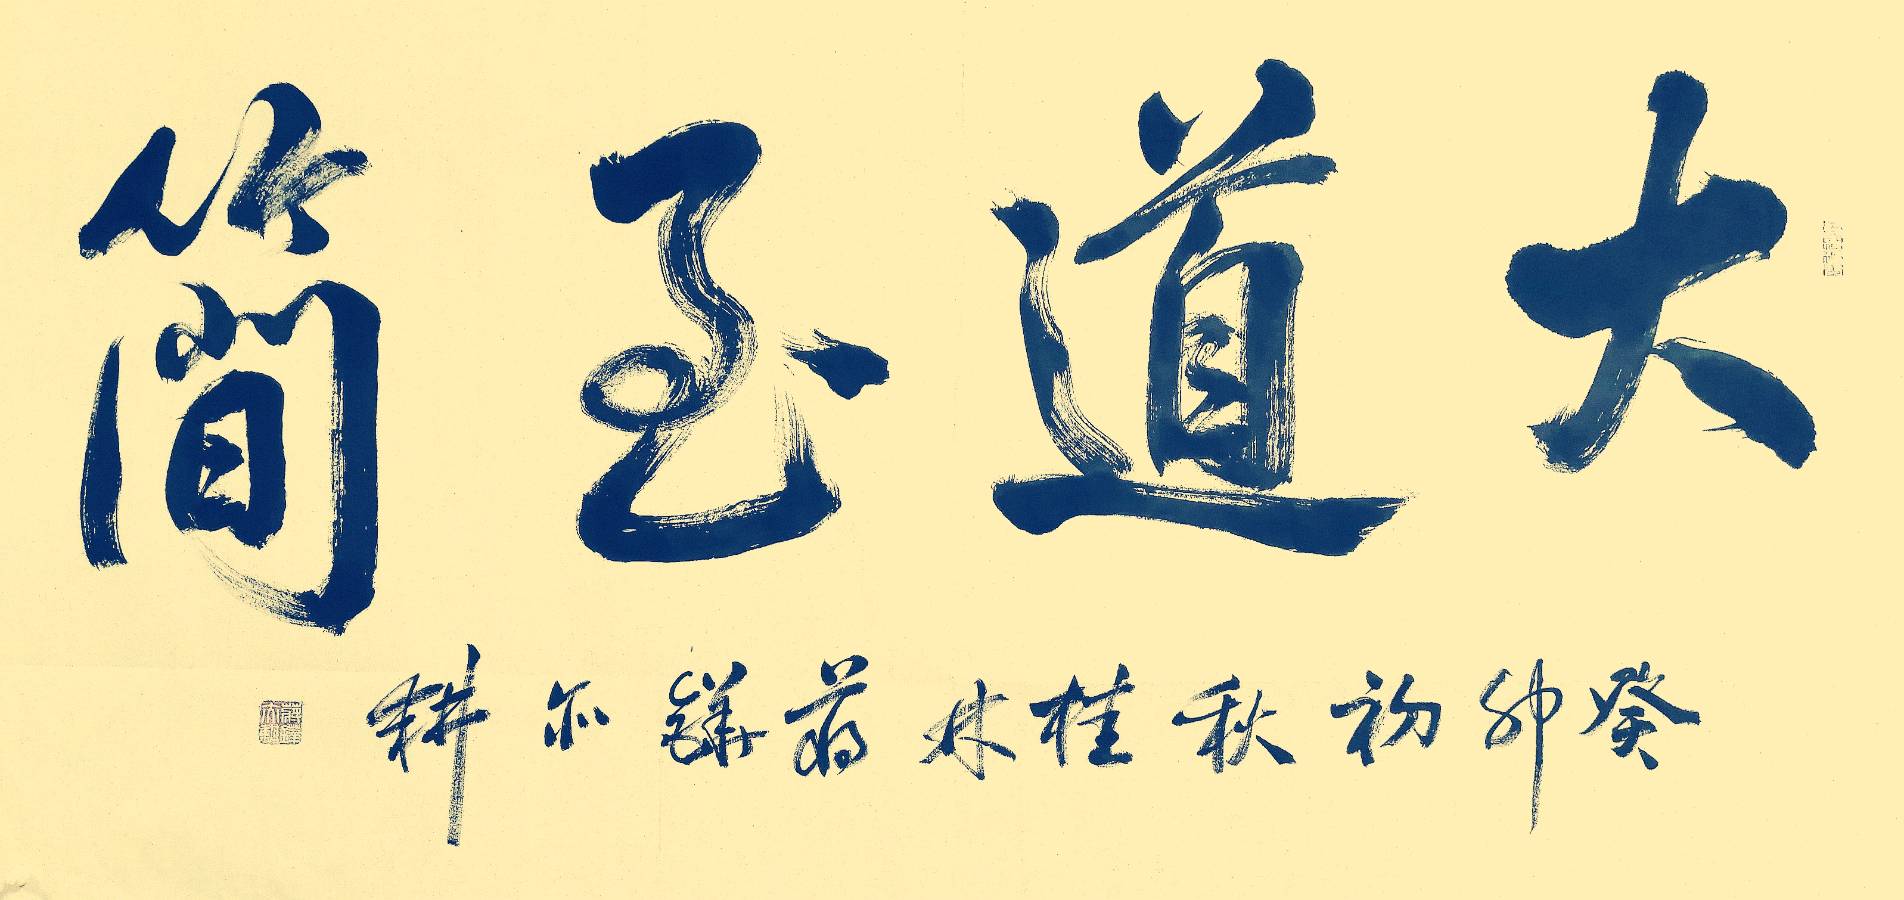 大道至簡
癸卯初秋桂林蔣鐵示耕